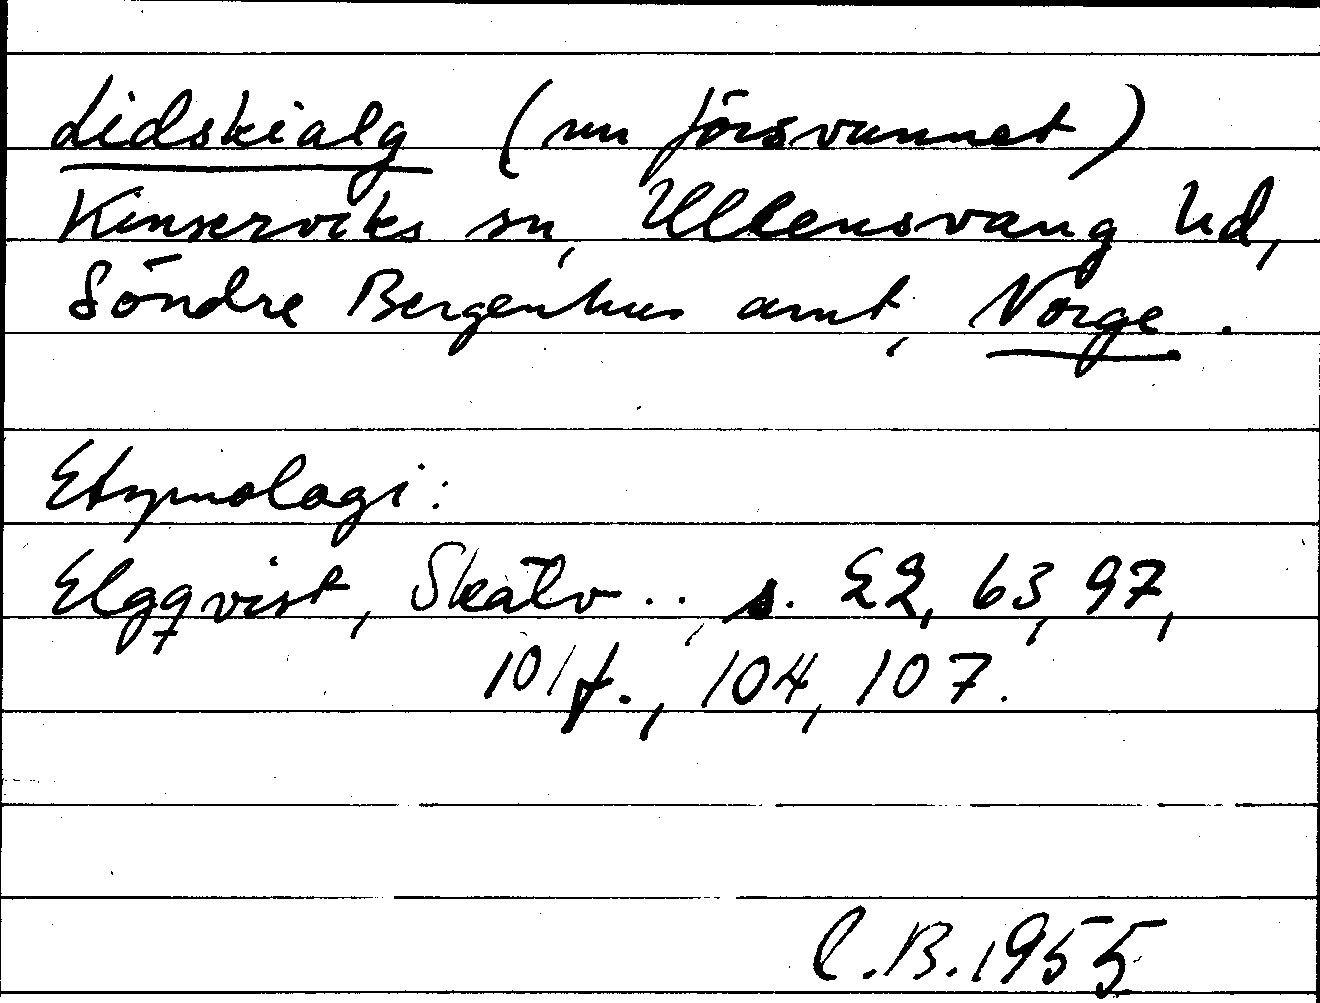 Lidskialg (nu försvunnet)
Kinserviks sn, Ullensvang hd,
Söndre Bergenhus amt, Norge.
Etymologi:
Elgqvist, Skälv .., s. 22, 63, 97,
101 f., 104, 107.
C.B. 1955